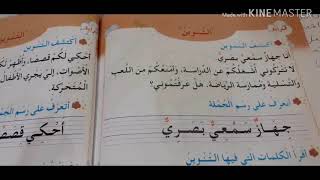 Made with KINEMASTER
التنوين
أكتشف التنوين
أنا جهاز سمعي بصري
لا تتركوني أشغلكم عن الدراسة، وأمنعكم من اللعب
والتسلية وممارسة الرياضة. هل عرفتموني؟
أتعرف على رسم الجملة
جهازٌ سمعيٌّ بصريٌّ
أقرأ الكلمات التي فيها التنوين
أكتشف التنوين
أحكي لكم قصصا، وأظهر لكم
الأصوات، التي يجري الأطفال
المتحركة.
أتعرف على رسم الجملة
أحكي قصصا